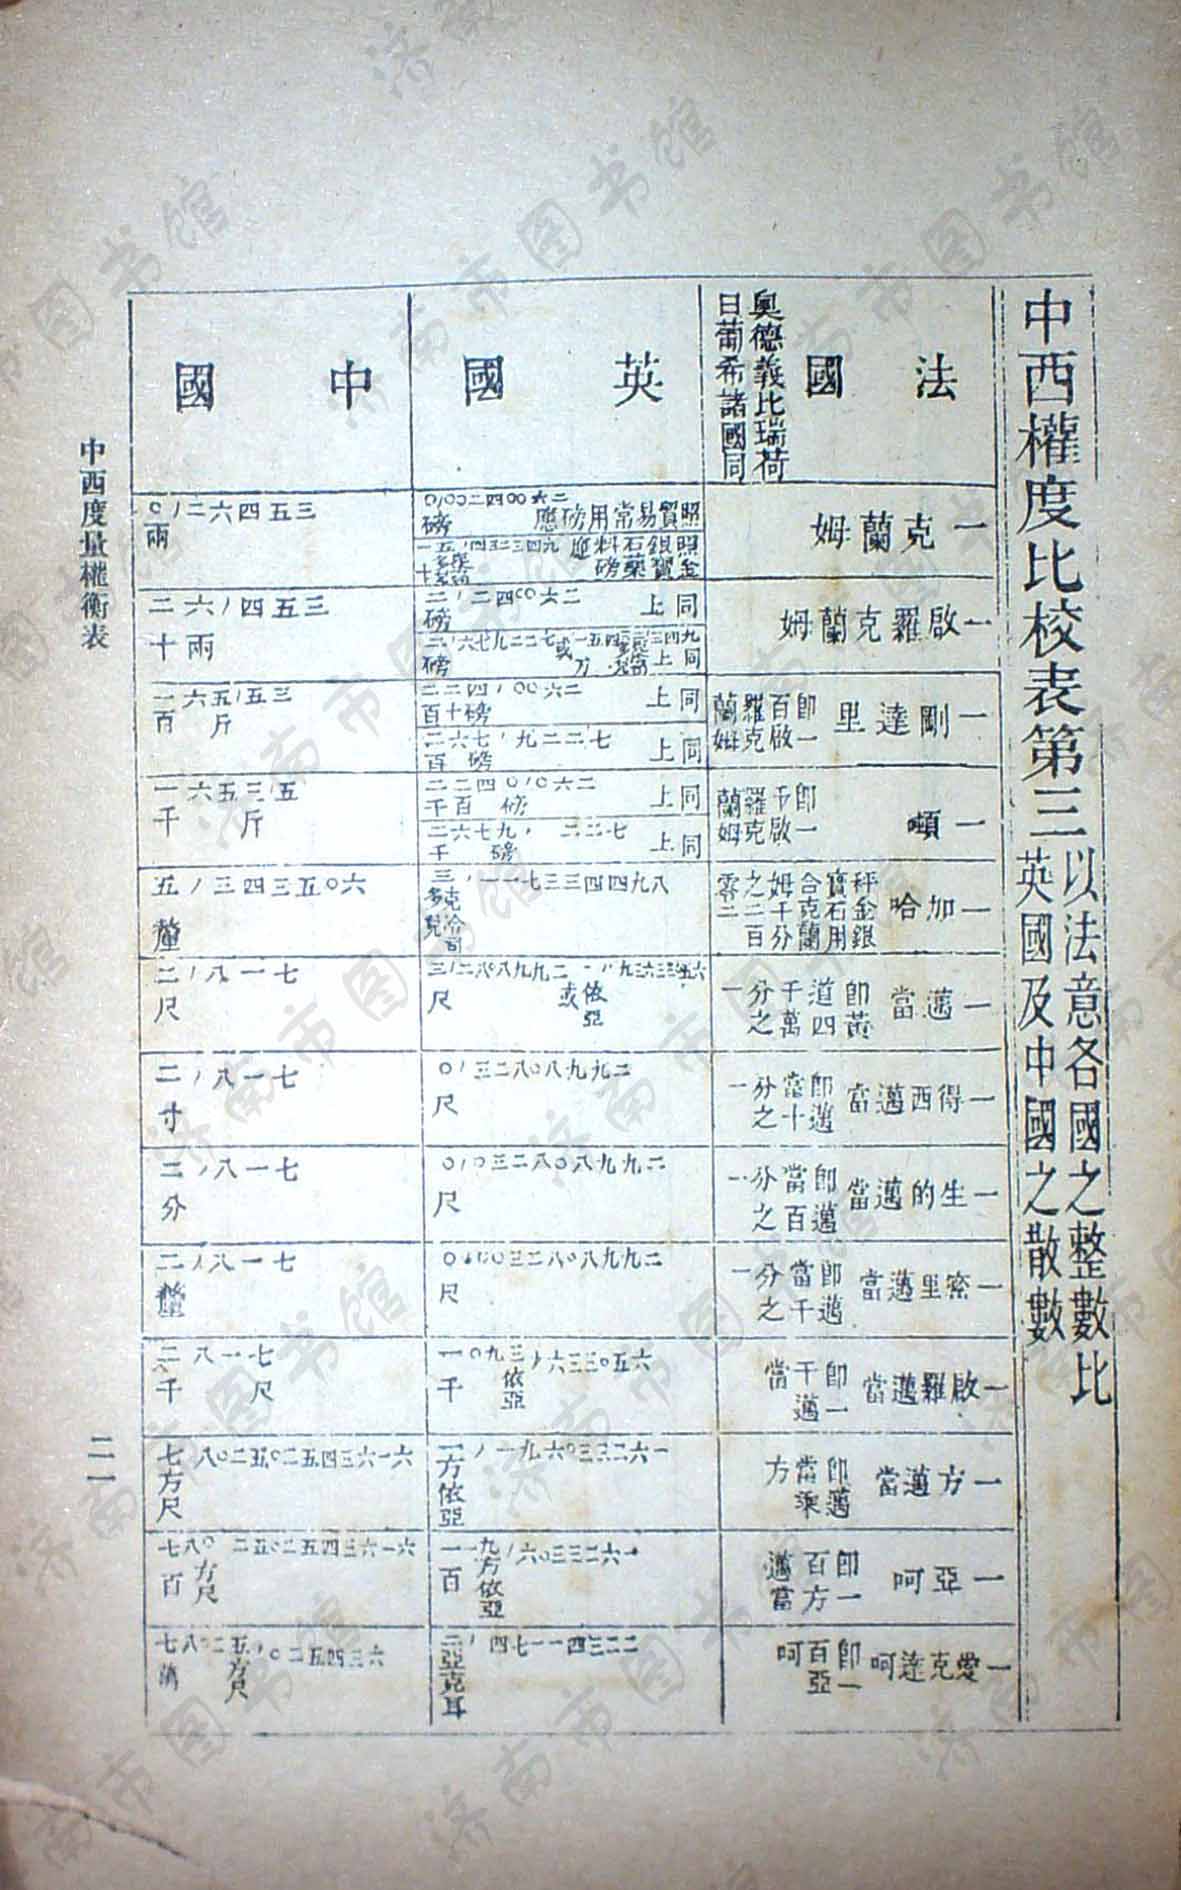 中西權度比校表第三
以法意各國之整數比
英國及中國之散數
法國
奧德義比瑞荷
日葡希諸國同
英國
中國
一克蘭姆
照貿易常用磅應
〇/〇〇二四〇〇六二
磅
照金銀寶石藥料應磅
〇/二六四五三
兩
一啟羅克蘭姆
同上
二/二四〇〇六二
磅
同上
二六/四五三
十兩
一剛達里
即一百啟羅克蘭姆
同上
二二四/〇〇六二
百十磅
同上
二六七/九二二七
百磅
一六五/五三
百斤
一噸
即一千啟羅克蘭姆
同上
二二四〇/〇六二
千百磅
同上
二六七九/二二七
千磅
一六五三五
千斤
一加哈
秤金銀寶石用
合克蘭姆千分之二百零二
三/一一七三三四四九八
五/三四三五〇六
釐
一邁當
即黃道四千萬分之一
三/二八〇八九九二
尺
或
依亞
二/八一七
尺
一得西邁當
即邁當十分之一
〇/三二八〇八九九二
尺
二/八一七
寸
一生的邁當
即邁當百分之一
〇/〇三二八〇八九九二
尺
二/八一七
分
一密里邁當
即邁當千分之一
〇/〇〇三二八〇八九九二
尺
二/八一七
釐
一啟羅邁當
即一千邁當
一〇九三/六三三〇五六
千依亞
二八一七
千尺
一方邁當
即邁當乘方
一/一九六〇三三二六一
方依亞
七八〇二五〇二五四三六一六
方尺
一亞呵
即一百方邁當
一一九/六〇三三二六一
百方依亞
七八〇二五〇二五四三六一六
百方尺
一愛克達呵
即一百亞呵
二/四七一一四三二二
亞克耳
七八〇二五/〇二五四三六
方尺
中西度量權衡表
二一
济南市图书馆